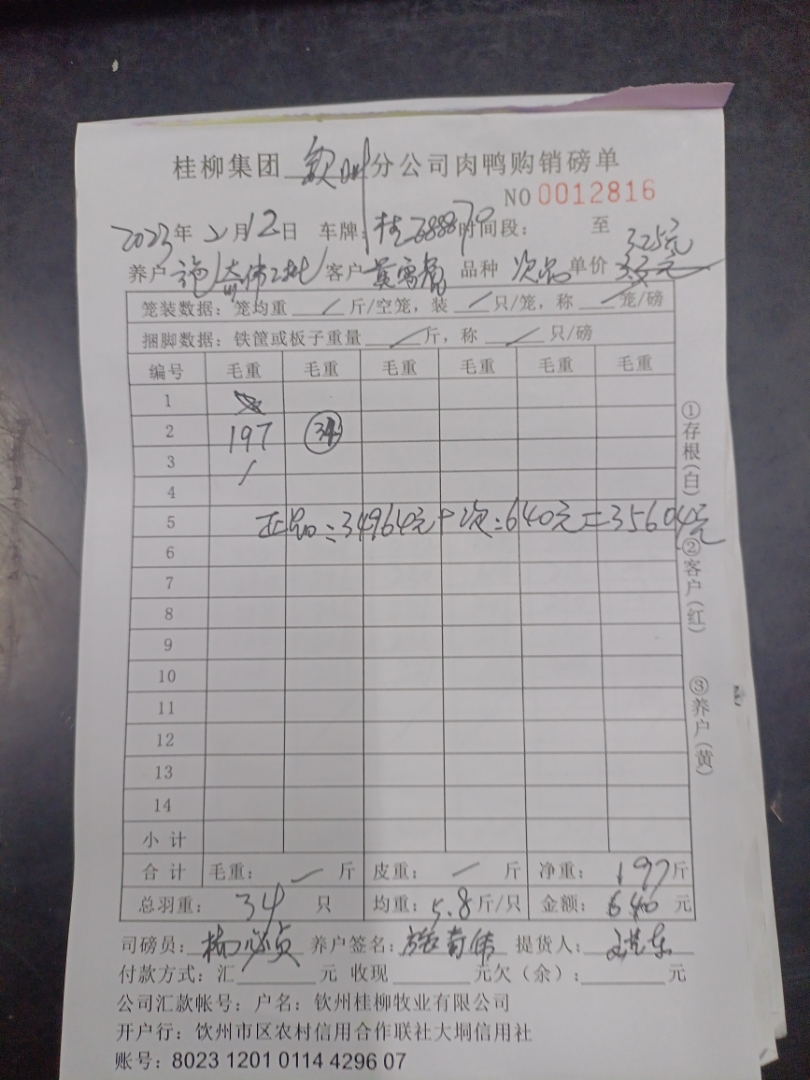 桂柳集团 钦州 分公司肉鸭购销磅单
NO 0012816
2023年 2月12日 车牌:桂 68887 时间段: 至
3.25元
养户 伟 批 客户 黄 品种 次品 单价 3.3元
笼装数据:笼均重 / 斤/空笼,装 / 只/笼,称 / 笼/磅
捆脚数据:铁筐或板子重量 / 斤,称 / 只/磅
编号 毛重 毛重 毛重 毛重 毛重 毛重
1
2 197 34
3 /
4
5 正品:34964元+次:640元=35604元
6
7
8
9
10
11
12
13
14
小计
合计 毛重: / 斤 皮重: / 斤 净重: 197斤
总羽重: 34 只 均重: 5.8斤/只 金额: 640 元
①存根(白) ②客户(红) ③养户(黄)
司磅员: 养户签名: 伟 提货人:
付款方式:汇 元 收现 元欠(余): 元
公司汇款帐号:户名:钦州桂柳牧业有限公司
开户行:钦州市区农村信用合作联社大垌信用社
账号:8023 1201 0114 4296 07